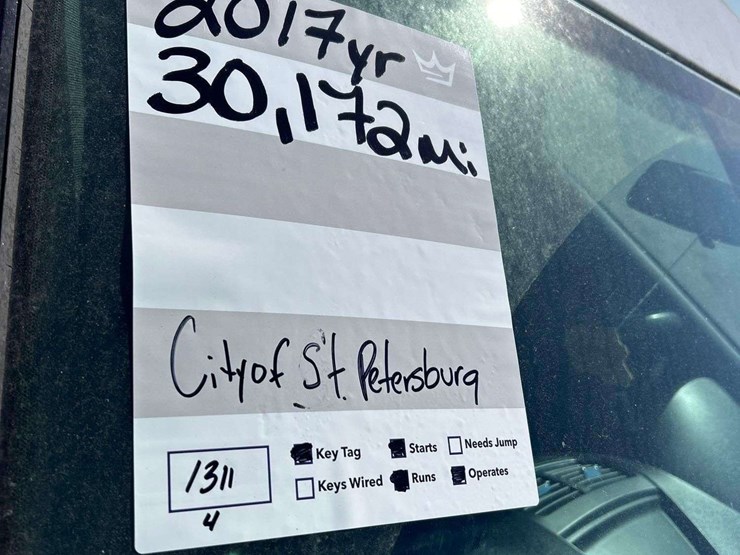 2017yr
30,172mi
City of St. Petersburg
1311
4
Key Tag
Starts
Needs Jump
Keys Wired
Runs
Operates